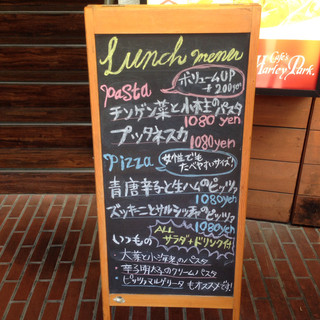 Lunch menu
pasta
ボリュームUP
+200yen
チンゲン菜と小柱のパスタ
1080 yen
プッタネスカ
1080yen
pizza
女性でも
たべやすいサイズ!
青唐辛子と生ハムのピッツァ
1080yen
ズッキーニとサルシッチャのピッツァ
1080yen
ALL
サラダ+ドリンク付
いつもの
・大葉と小海老のパスタ
・辛子明太子のクリームパスタ
・ピッツァマルゲリータ もオススメです!
Cafe
Marley Park.